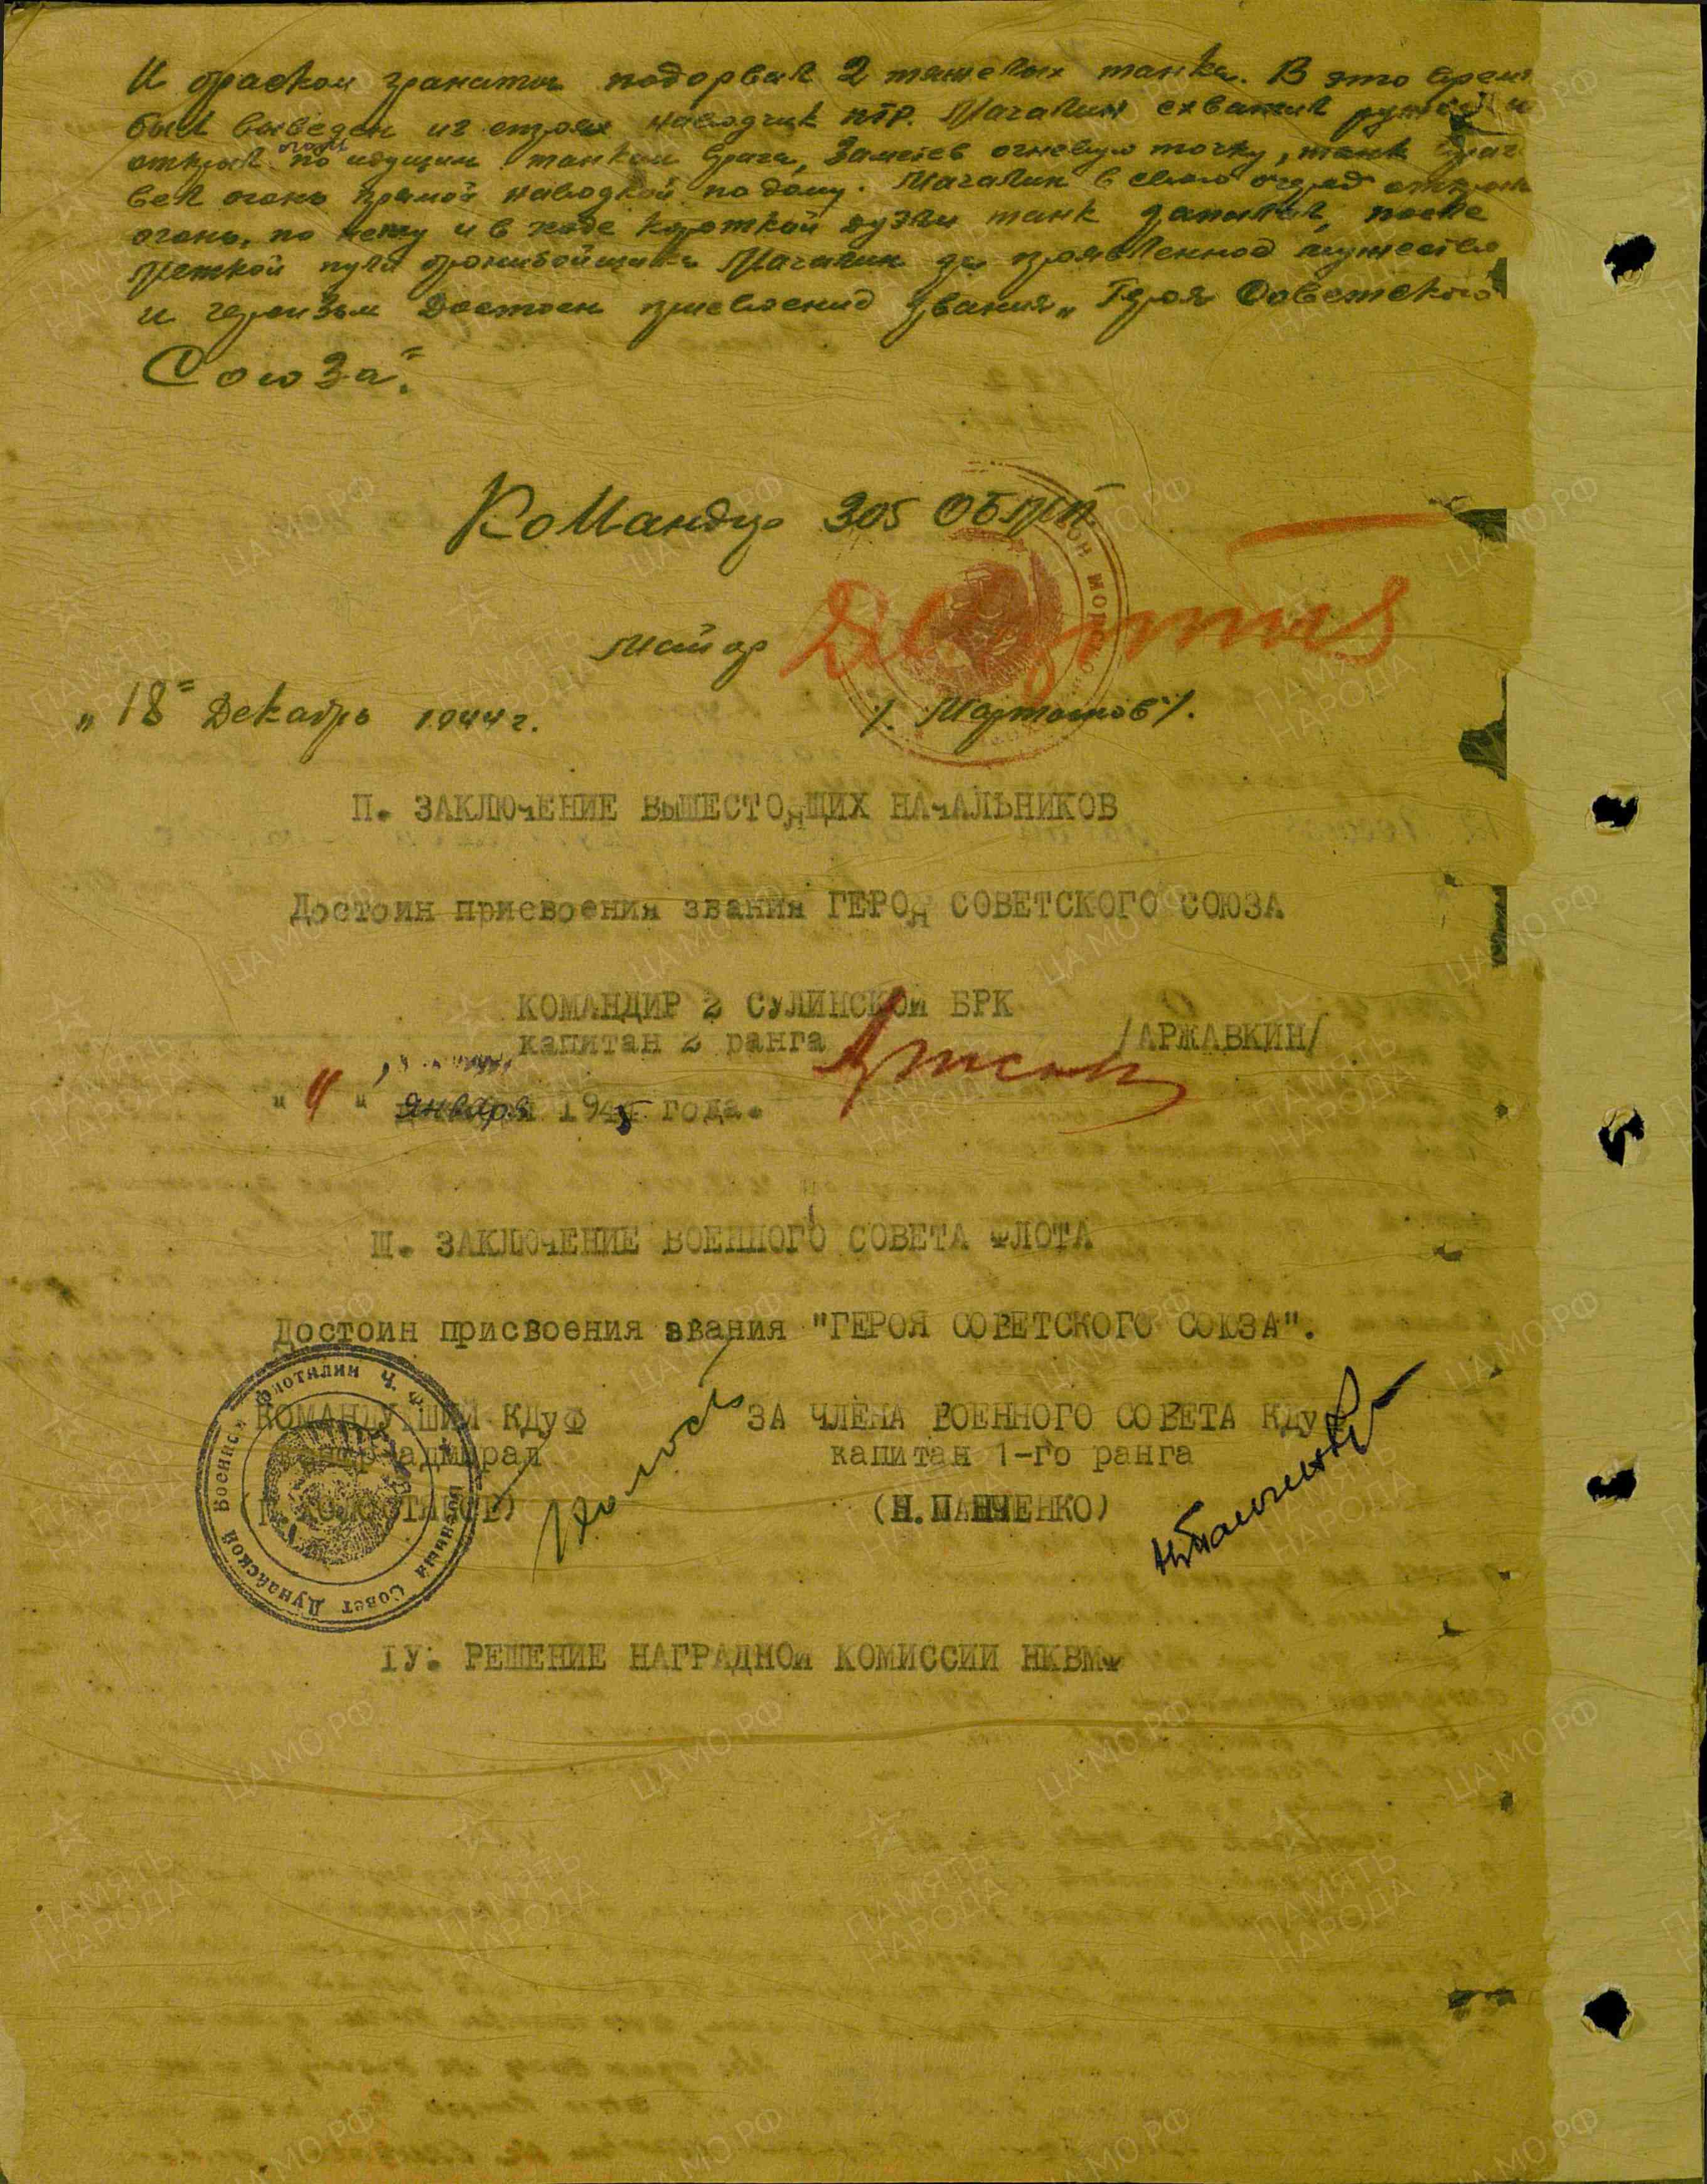 И броском гранаты подорвал 2 тяжелых танка. В это время
был выведен из строя наводчик птр. Мачалин схватил ружье и
открыл огонь по идущим танкам врага, Заметев огневую точку, танк враг
вел огонь прямой наводкой по дому. Мачалин в свою очеред открыл
огонь, по нему и в ходе короткой дуэли танк запылал, после
меткой пули бронебойщика Мачалин за проявленное мужество
и героизм Достоен присвоение звания „Героя Советского
Союза"
Командир 305 ОБМП
майор
/. Мартынов /.
„18" Декабрь 1944 г.
П. ЗАКЛЮЧЕНИЕ ВЫШЕСТОЯЩИХ НАЧАЛЬНИКОВ
Достоин присвоения звания ГЕРОЯ СОВЕТСКОГО СОЮЗА
КОМАНДИР 2 СУЛИНСКОЙ БРК
капитан 2 ранга /АРЖАВКИН/
" 4 " января 1945 года.
Ш. ЗАКЛЮЧЕНИЕ ВОЕННОГО СОВЕТА ФЛОТА
Достоин присвоения звания "ГЕРОЯ СОВЕТСКОГО СОЮЗА".
КОМАНДУЮЩИЙ КДуФ ЗА ЧЛЕНА ВОЕННОГО СОВЕТА КДуФ
адмирал капитан 1-го ранга
(Н.ПАНЧЕНКО)
Военный Совет Дунайской Военной Флотилии Ч. Ф.
IУ. РЕШЕНИЕ НАГРАДНОЙ КОМИССИИ НКВМФ
ПАМЯТЬ НАРОДА
ЦА МО РФ